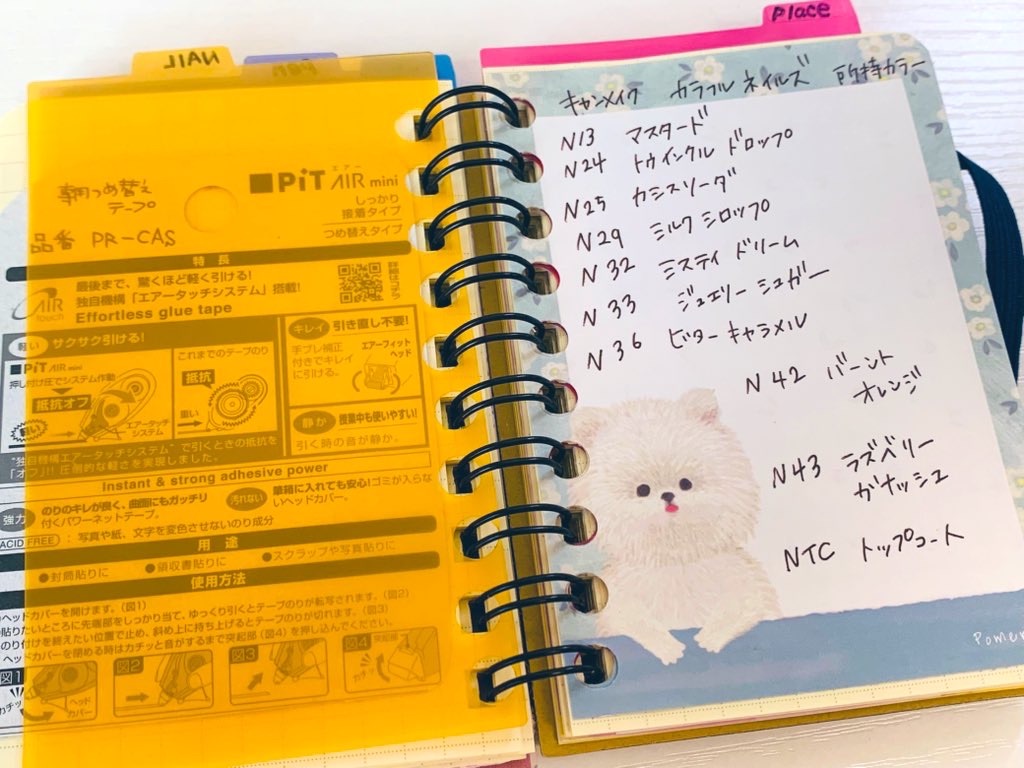 NAIL
Pen
Place
専用つめ替え
テープ
品番 PR-CAS
エアー
PiT AIR mini
しっかり
接着タイプ
つめ替えタイプ
特長
AIR
touch
最後まで、驚くほど軽く引ける!
独自機構「エアータッチシステム」搭載!
Effortless glue tape
詳細はコチラ
軽い サクサク引ける!
PiT AIR mini
押し付け圧でシステム作動
抵抗オフ
軽い
エアータッチ
システム
これまでのテープのり
抵抗
重い
"独自機構エアータッチシステム"で引くときの抵抗を
「オフ」!! 圧倒的な軽さを実現しました。
キレイ 引き直し不要!
手ブレ補正
付きでキレイ
に引ける。
エアーフィット
ヘッド
静か 授業中も使いやすい!
引く時の音が静か。
Instant & strong adhesive power
強力 のりのキレが良く、曲面にもガッチリ
付くパワーネットテープ。
汚れない 筆箱に入れても安心!ゴミが入らな
いヘッドカバー。
ACID FREE : 写真や紙、文字を変色させないのり成分
用途
●封筒貼りに ●領収書貼りに ●スクラップや写真貼りに
使用方法
ヘッドカバーを開けます。(図1)
貼りたいところに先端部をしっかり当て、ゆっくり引くとテープのりが転写されます。(図2)
のり付けを終えたい位置で止め、斜め上に持ち上げるとテープのりが切れます。(図3)
ヘッドカバーを閉める時はカチッと音がするまで突起部(図4)を押し込んでください。
図1
カチッ
ヘッド
カバー
図2
図3
図4
突起部
カチッ
キャンメイク カラフルネイルズ 所持カラー
N13 マスタード
N24 トゥインクル ドロップ
N25 カシスソーダ
N29 ミルクシロップ
N32 ミスティ ドリーム
N33 ジュエリーシュガー
N36 ビターキャラメル
N42 バーント
オレンジ
N43 ラズベリー
ガナッシュ
NTC トップコート